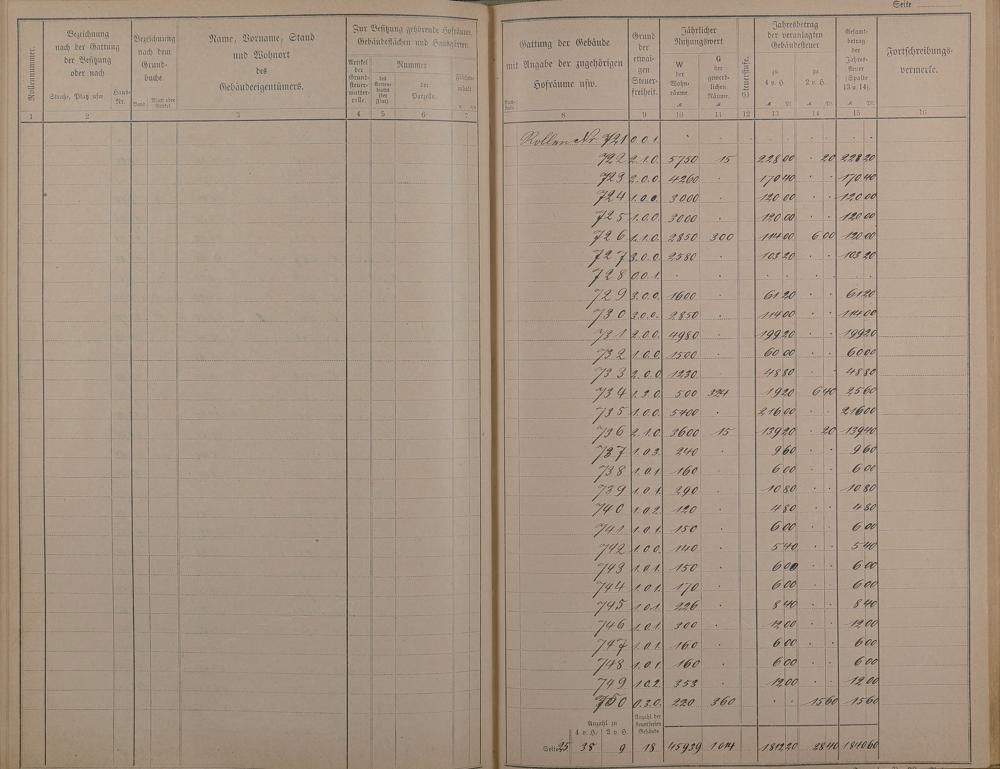 Seite
Rollennummer.
Bezeichnung
nach der Gattung
der Besitzung
oder nach
Straße, Platz usw.
Haus-
Nr.
Bezeichnung
nach dem
Grund-
buche.
Band.
Blatt oder
Artikel
Name, Vorname, Stand
und Wohnort
des
Gebäudeeigentümers.
Zur Besitzung gehörende Hofräume,
Gebäudeflächen und Hausgärten.
Artikel
der
Grund-
steuer-
mutter-
rolle.
Nummer
des
Karten-
blatts
(der
Flur)
der
Parzelle.
Flächen-
inhalt
1 2 3 4 5 6 7
Gattung der Gebäude
mit Angabe der zugehörigen
Hofräume usw.
Grund
der
etwai-
gen
Steuer-
freiheit.
Jährlicher
Nutzungswert
W
der
Wohn-
räume.
G
der
gewerb-
lichen
Räume.
Steuerstufe.
Jahresbetrag
der veranlagten
Gebäudesteuer
zu
4 v. H.
zu
2 v. H.
Gesamt-
betrag
der
Jahres-
steuer
(Spalte
13 u. 14).
Fortschreibungs-
vermerke.
8 9 10 11 12 13 14 15 16
Rollen Nr. 721 0.0.1. . . . . .
722 2.1.0. 5750 15 228 00 . 20 228 20
723 2.0.0. 4260 . 170 40 . . 170 40
724 1.0.0. 3000 . 120 00 . . 120 00
725 1.0.0. 3000 . 120 00 . . 120 00
726 1.1.0. 2850 300 114 00 6 00 120 00
727 3.0.0. 2580 . 103 20 . . 103 20
728 0.0.1. . . . . . .
729 3.0.0. 1600 . 61 20 . . 61 20
730 3.0.0. 2850 . 114 00 . . 114 00
731 2.0.0. 4980 . 199 20 . . 199 20
732 1.0.0. 1500 . 60 00 . . 60 00
733 2.0.0 1230 . 48 80 . . 48 80
734 1.2.0. 500 324 19 20 6 40 25 60
735 1.0.0. 5400 . 216 00 . . 216 00
736 2.1.0. 3600 15 139 20 . 20 139 40
737 1.0.3. 240 . 9 60 . . 9 60
738 1.0.1. 160 . 6 00 . . 6 00
739 1.0.1. 290 . 10 80 . . 10 80
740 1.0.2. 120 . 4 80 . . 4 80
741 1.0.1. 150 . 6 00 . . 6 00
742 1.0.0. 140 . 5 40 . . 5 40
743 1.0.1. 150 . 6 00 . . 6 00
744 1.0.1. 170 . 6 00 . . 6 00
745 1.0.1. 226 . 8 40 . . 8 40
746 1.0.1. 300 . 12 00 . . 12 00
747 1.0.1. 160 . 6 00 . . 6 00
748 1.0.1. 160 . 6 00 . . 6 00
749 1.0.2. 353 . 12 00 . . 12 00
750 0.3.0. 220 360 . . 15 60 15 60
Anzahl zu
4 v. H. 2 v. H.
Anzahl der
steuerfreien
Gebäude
Seite 25 38 9 18 45939 1014 1812 20 28 40 1840 60